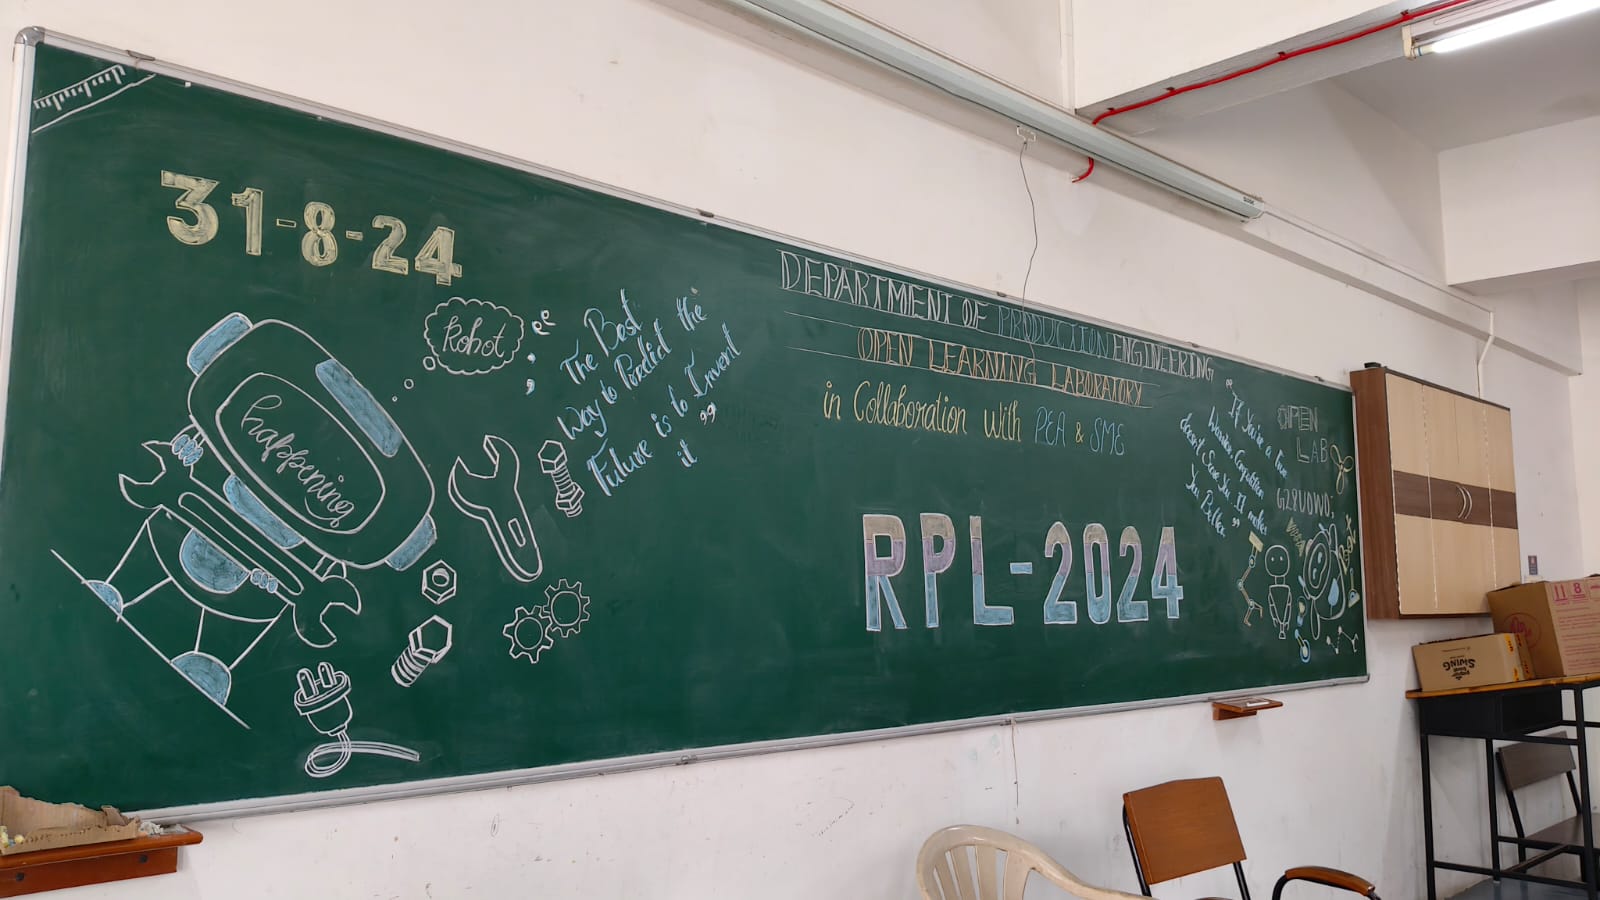 31-8-24
Robot
happening
“ The Best
Way to Predict the
Future is to Invent
it ”
DEPARTMENT OF PRODUCTION ENGINEERING
OPEN LEARNING LABORATORY
in Collaboration with PEA & SME
RPL-2024
“ If You're a True
doesn't Scare You. It makes
You Better ”
OPEN
LAB
SWING